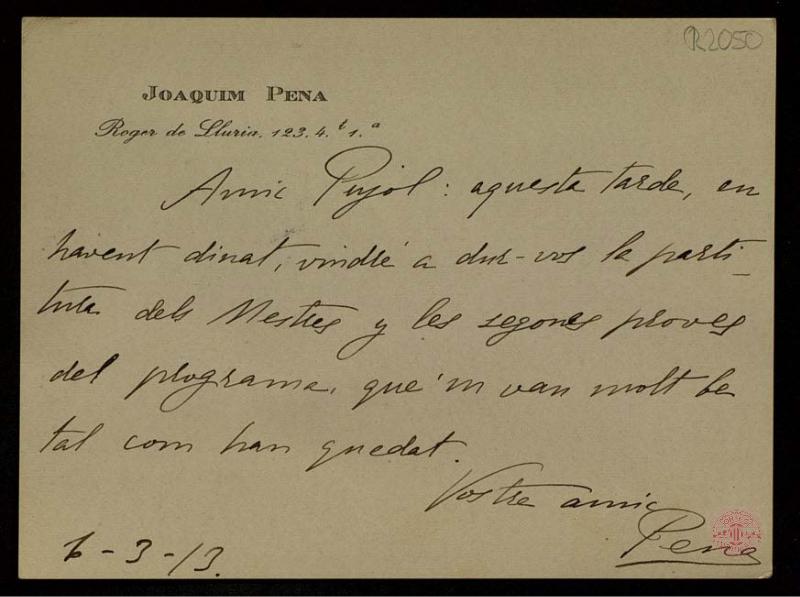 R2050
JOAQUIM PENA
Roger de Lluria, 123, 4.t 1.a
Amic Pujol: aquesta tarde, en
havent dinat, vindré a dur-vos la parti-
tura dels Mestres y les segones proves
del programa, que'm van molt be
tal com han quedat.
Vostre amic
Pena
6-3-13.